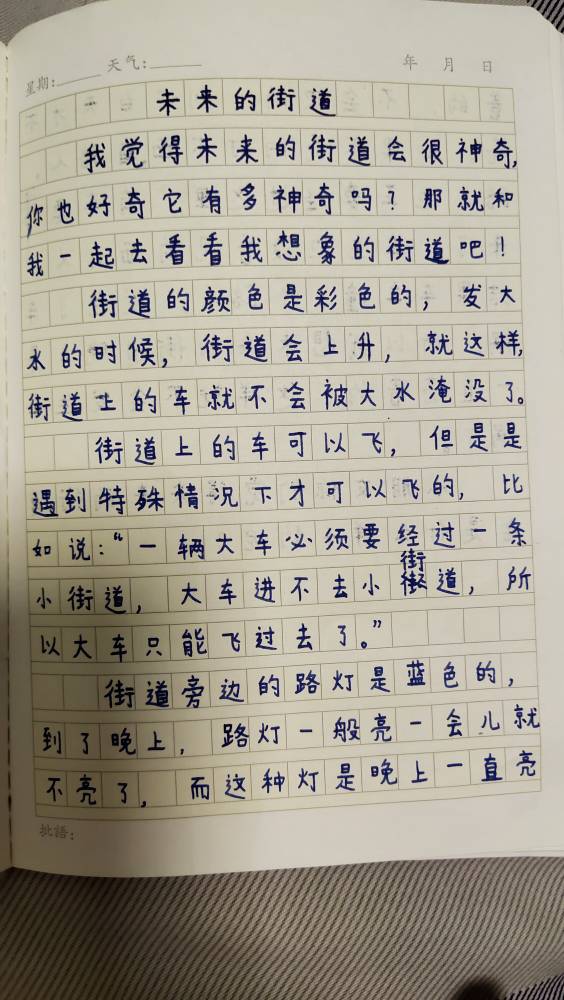 星期:______ 天气:______ 年 月 日
未来的街道
我觉得未来的街道会很神奇,
你也好奇它有多神奇吗?那就和
我一起去看看我想象的街道吧!
街道的颜色是彩色的,发大
水的时候,街道会上升,就这样,
街道上的车就不会被大水淹没了。
街道上的车可以飞,但是是
遇到特殊情况下才可以飞的,比
如说:“一辆大车必须要经过一条
小街道,大车进不去小街道,所
以大车只能飞过去了。”
街道旁边的路灯是蓝色的,
到了晚上,路灯一般亮一会儿就
不亮了,而这种灯是晚上一直亮
批語: